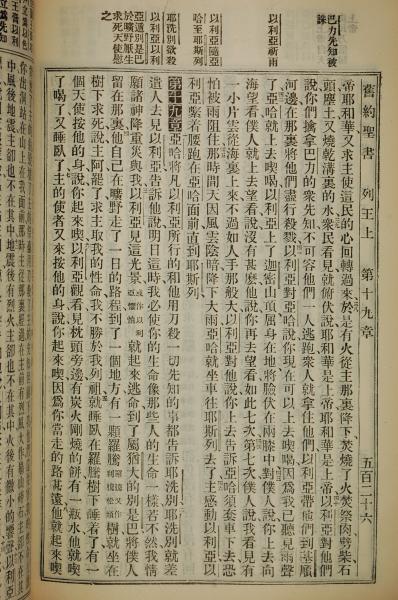 舊約聖書 列王上 第十九章 五百二十六
巴力先知被誅
以利亞祈雨
以利亞隨亞哈至耶斯列
耶洗別欲殺以利亞以利亞遁別是巴於曠野厭生求死天使慰之
帝耶和華又求主使這民的心回轉過來於是有火從主那裏降下焚燒了火焚祭肉劈柴石
頭塵土又燒乾溝裏的水衆民看見就俯伏說耶和華是上帝耶和華是上帝以利亞對他們
說你們擒拏巴力的衆先知不可容他們一人逃跑來人就拿住他們以利亞帶他們到基順
河邊在那裏將他們盡行殺戮以利亞對亞哈說你現在可以上去喫喝因爲我已聽見雨聲
了亞哈就上去喫喝以利亞上了迦密山頂屈身在地將臉伏在兩膝中對僕人說你上去向
海望看僕人就上去望看說沒有甚麽他說你再去望看如此七次第七次僕人說我看見有
一小片雲從海裏上來不過如人手那般大以利亞對他說你上去告訴亞哈須套車下去恐
怕被雨阻住那時間天因風雲陰暗降下大雨亞哈就坐車往耶斯列去了主感動以利亞以
利亞緊着腰跑在亞哈面前直到耶斯列
第十九章 亞哈將凡以利亞所行的和他用刀殺一切先知的事都告訴耶洗別耶洗別就差
遣人去見以利亞告訴他說明日這時我必使你的生命像那些人的生命一樣若不然我情
願諸神降重災與我以利亞見這光景就起來逃命到了屬猶大的別是巴將僕人
留在那裏他自己在曠野走了一日的路程到了一個地方有一顆羅騰樹就坐在
樹下求死說主阿罷了求主取我的性命我不勝於我列祖就睡臥在羅騰樹下睡着了有一
個天使按他的身說你起來喫以利亞觀看見枕頭旁邊有炭火剛燒的餅有一瓶水他就喫
了喝了又睡臥了主的使者又來按他的身說你起來喫因爲你當走的路甚遠他就起來喫